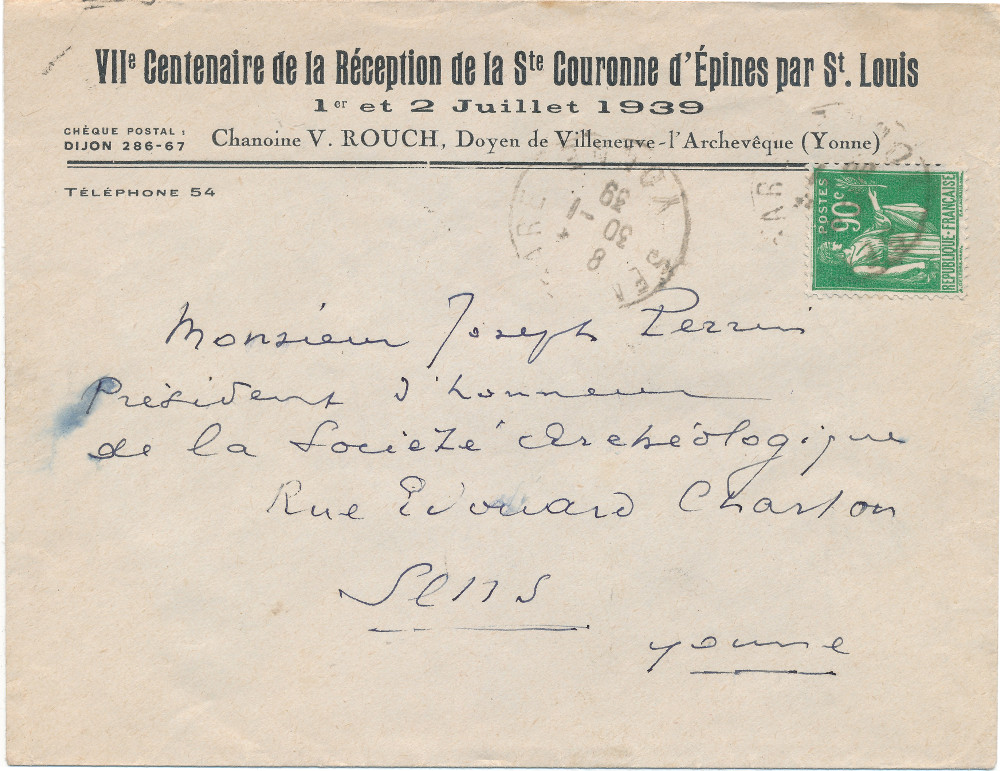 VIIe Centenaire de la Réception de la Ste Couronne d'Épines par St. Louis
1er et 2 Juillet 1939
CHÈQUE POSTAL :
DIJON 286-67
Chanoine V. ROUCH, Doyen de Villeneuve-l'Archevêque (Yonne)
TÉLÉPHONE 54
POSTES
90c
REPUBLIQUE·FRANÇAISE
GARE
8
30
-1
39
Monsieur Joseph Perrin
Président d'honneur
de la Société Archéologique
Rue Edouard Charton
Sens
Yonne